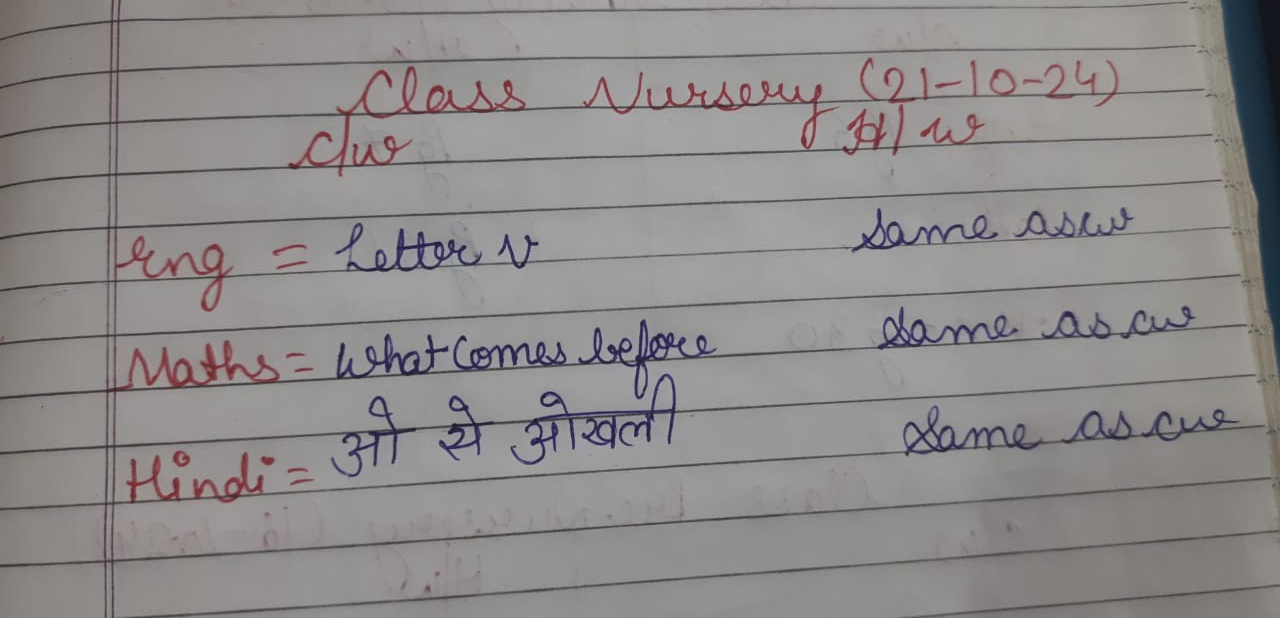 Class Nursery (21-10-24)
C/w H/w
Eng = Letter v Same as cw
Maths = What Comes before Same as cw
Hindi = ओ से ओखली Same as cw